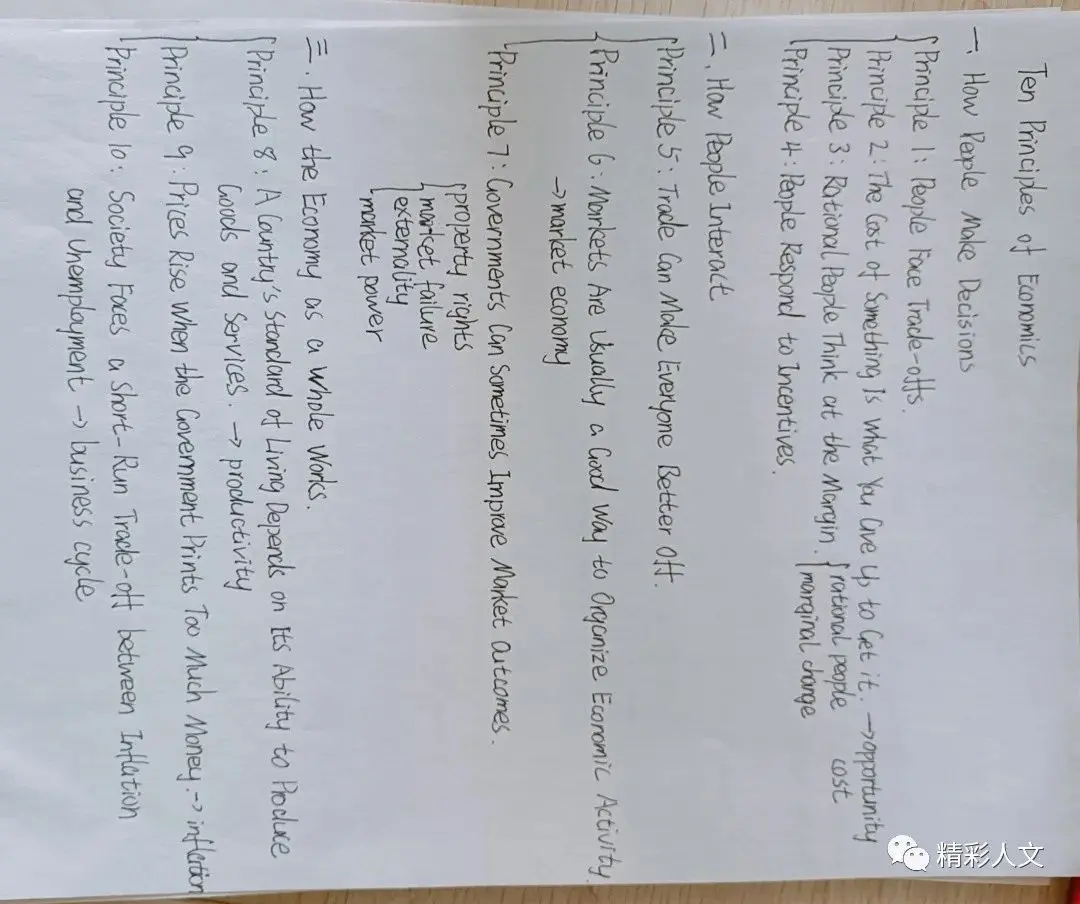 Ten Principles of Economics
一. How People Make Decisions
Principle 1: People Face Trade-offs.
Principle 2: The Cost of Something Is What You Give Up to Get it. →opportunity cost
Principle 3: Rational People Think at the Margin. rational people
marginal change
Principle 4: People Respond to Incentives.
二. How People Interact
Principle 5: Trade Can Make Everyone Better Off.
Principle 6: Markets Are Usually a Good Way to Organize Economic Activity.
→market economy
Principle 7: Governments Can Sometimes Improve Market Outcomes.
property rights
market failure
externality
market power
三. How the Economy as a Whole Works.
Principle 8: A Country's Standard of Living Depends on Its Ability to Produce
Goods and Services. → productivity
Principle 9: Prices Rise When the Government Prints Too Much Money.→ inflation
Principle 10: Society Faces a Short-Run Trade-off between Inflation
and Unemployment → business cycle
精彩人文